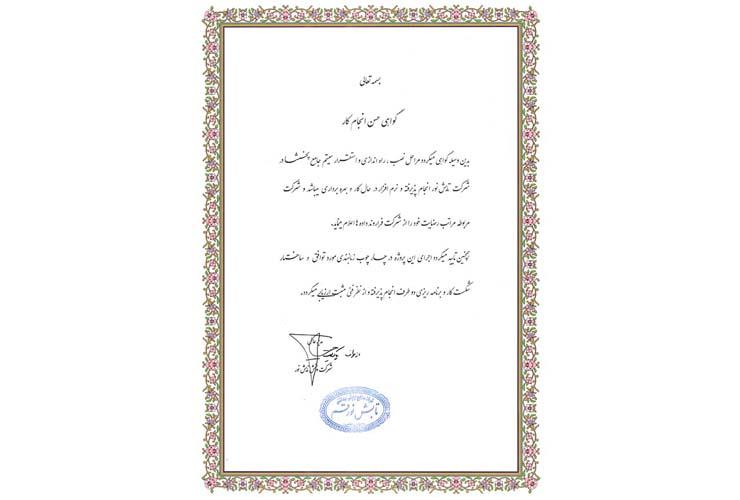 بسمه تعالی
گواهی حسن انجام کار
بدین وسیله گواهی میگردد مراحل نصب، راه اندازی و استقرار سیستم جامع در
شرکت تابش نور انجام پذیرفته و نرم افزار در حال کار و بهره برداری میباشد و شرکت
مربوطه مراتب رضایت خود را از شرکت فراروند داده ها اعلام مینماید.
همچنین تایید میگردد اجرای این پروژه در چهار چوب زمانبندی مورد توافق و ساختار
شکست کار و برنامه ریزی دو طرف انجام پذیرفته و از نظر فنی مثبت ارزیابی میگردد.
شرکت تابش نور
تابش نور قم